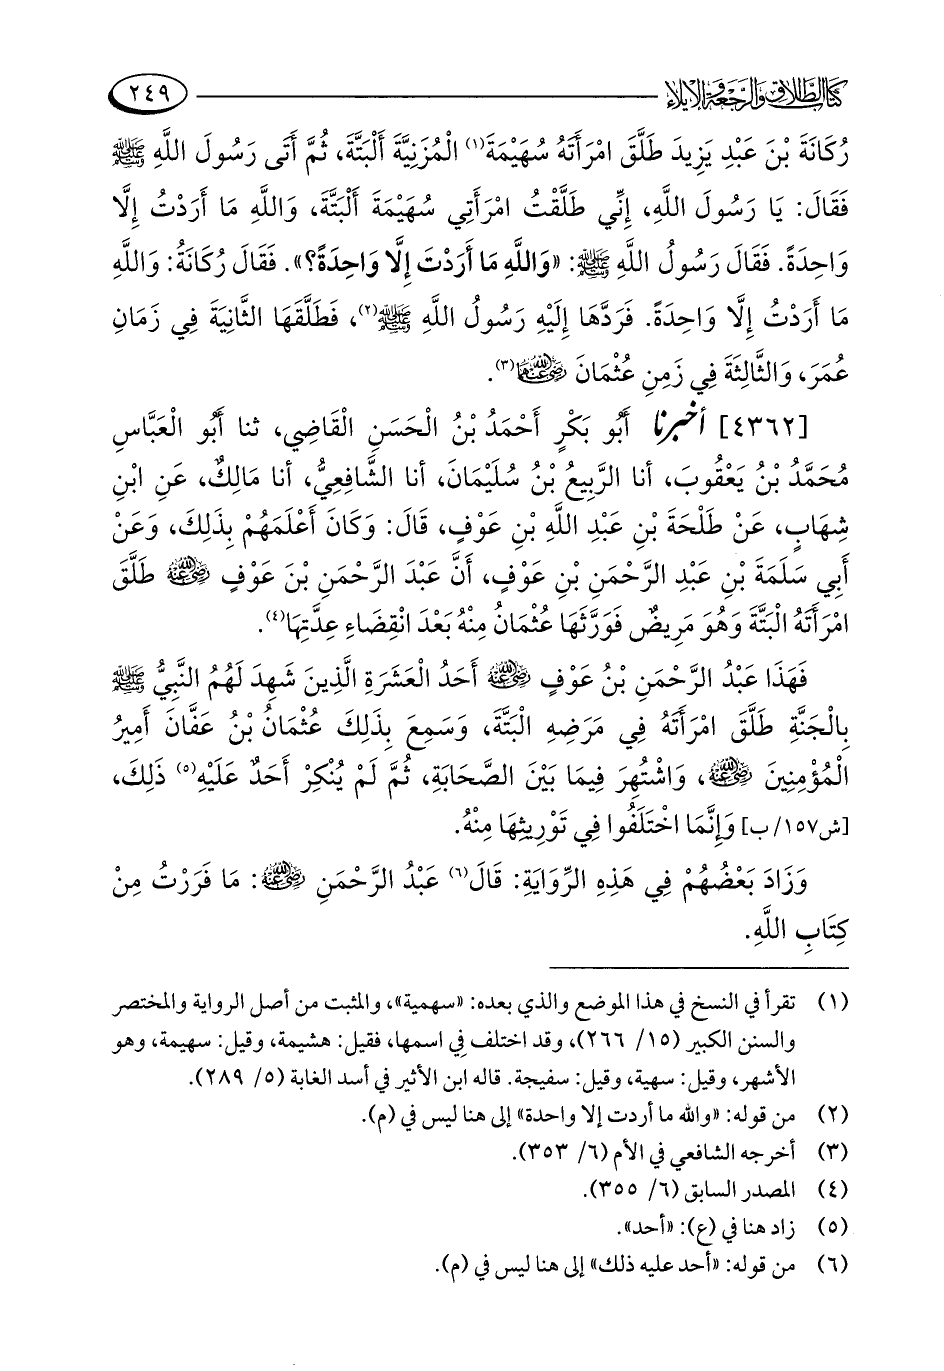 كتاب الطلاق والرجعة والإيلاء ٢٤٩
رُكَانَةَ بْنَ عَبْدِ يَزِيدَ طَلَّقَ امْرَأَتَهُ سُهَيْمَةَ(١) الْمُزَنِيَّةَ أَلْبَتَّةَ، ثُمَّ أَتَى رَسُولَ اللَّهِ ﷺ
فَقَالَ: يَا رَسُولَ اللَّهِ، إِنِّي طَلَّقْتُ امْرَأَتِي سُهَيْمَةَ أَلْبَتَّةَ، وَاللَّهِ مَا أَرَدْتُ إِلَّا
وَاحِدَةً. فَقَالَ رَسُولُ اللَّهِ ﷺ: «وَاللَّهِ مَا أَرَدْتَ إِلَّا وَاحِدَةً؟». فَقَالَ رُكَانَةُ: وَاللَّهِ
مَا أَرَدْتُ إِلَّا وَاحِدَةً. فَرَدَّهَا إِلَيْهِ رَسُولُ اللَّهِ ﷺ(٢)، فَطَلَّقَهَا الثَّانِيَةَ فِي زَمَانِ
عُمَرَ، وَالثَّالِثَةَ فِي زَمِنِ عُثْمَانَ رضي الله عنهما(٣).
[٤٣٦٢] أخبرنا أَبُو بَكْرٍ أَحْمَدُ بْنُ الْحَسَنِ الْقَاضِي، ثنا أَبُو الْعَبَّاسِ
مُحَمَّدُ بْنُ يَعْقُوبَ، أنا الرَّبِيعُ بْنُ سُلَيْمَانَ، أنا الشَّافِعِيُّ، أنا مَالِكٌ، عَنِ ابْنِ
شِهَابٍ، عَنْ طَلْحَةَ بْنِ عَبْدِ اللَّهِ بْنِ عَوْفٍ، قَالَ: وَكَانَ أَعْلَمَهُمْ بِذَلِكَ، وَعَنْ
أَبِي سَلَمَةَ بْنِ عَبْدِ الرَّحْمَنِ بْنِ عَوْفٍ، أَنَّ عَبْدَ الرَّحْمَنِ بْنَ عَوْفٍ رضي الله عنه طَلَّقَ
امْرَأَتَهُ الْبَتَّةَ وَهُوَ مَرِيضٌ فَوَرَّثَهَا عُثْمَانُ مِنْهُ بَعْدَ انْقِضَاءِ عِدَّتِهَا(٤).
فَهَذَا عَبْدُ الرَّحْمَنِ بْنُ عَوْفٍ رضي الله عنه أَحَدُ الْعَشَرَةِ الَّذِينَ شَهِدَ لَهُمُ النَّبِيُّ ﷺ
بِالْجَنَّةِ طَلَّقَ امْرَأَتَهُ فِي مَرَضِهِ الْبَتَّةَ، وَسَمِعَ بِذَلِكَ عُثْمَانُ بْنُ عَفَّانَ أَمِيرُ
الْمُؤْمِنِينَ رضي الله عنه، وَاشْتُهِرَ فِيمَا بَيْنَ الصَّحَابَةِ، ثُمَّ لَمْ يُنْكِرْ أَحَدٌ عَلَيْهِ(٥) ذَلِكَ،
[ش١٥٧/ب] وَإِنَّمَا اخْتَلَفُوا فِي تَوْرِيثِهَا مِنْهُ.
وَزَادَ بَعْضُهُمْ فِي هَذِهِ الرِّوَايَةِ: قَالَ(٦) عَبْدُ الرَّحْمَنِ رضي الله عنه: مَا فَرَرْتُ مِنْ
كِتَابِ اللَّهِ.
(١) تقرأ في النسخ في هذا الموضع والذي بعده: «سهمية»، والمثبت من أصل الرواية والمختصر
والسنن الكبير (١٥/ ٢٦٦)، وقد اختلف في اسمها، فقيل: هشيمة، وقيل: سهيمة، وهو
الأشهر، وقيل: سهية، وقيل: سفيجة. قاله ابن الأثير في أسد الغابة (٥/ ٢٨٩).
(٢) من قوله: «والله ما أردت إلا واحدة» إلى هنا ليس في (م).
(٣) أخرجه الشافعي في الأم (٦/ ٣٥٣).
(٤) المصدر السابق (٦/ ٣٥٥).
(٥) زاد هنا في (ع): «أحد».
(٦) من قوله: «أحد عليه ذلك» إلى هنا ليس في (م).